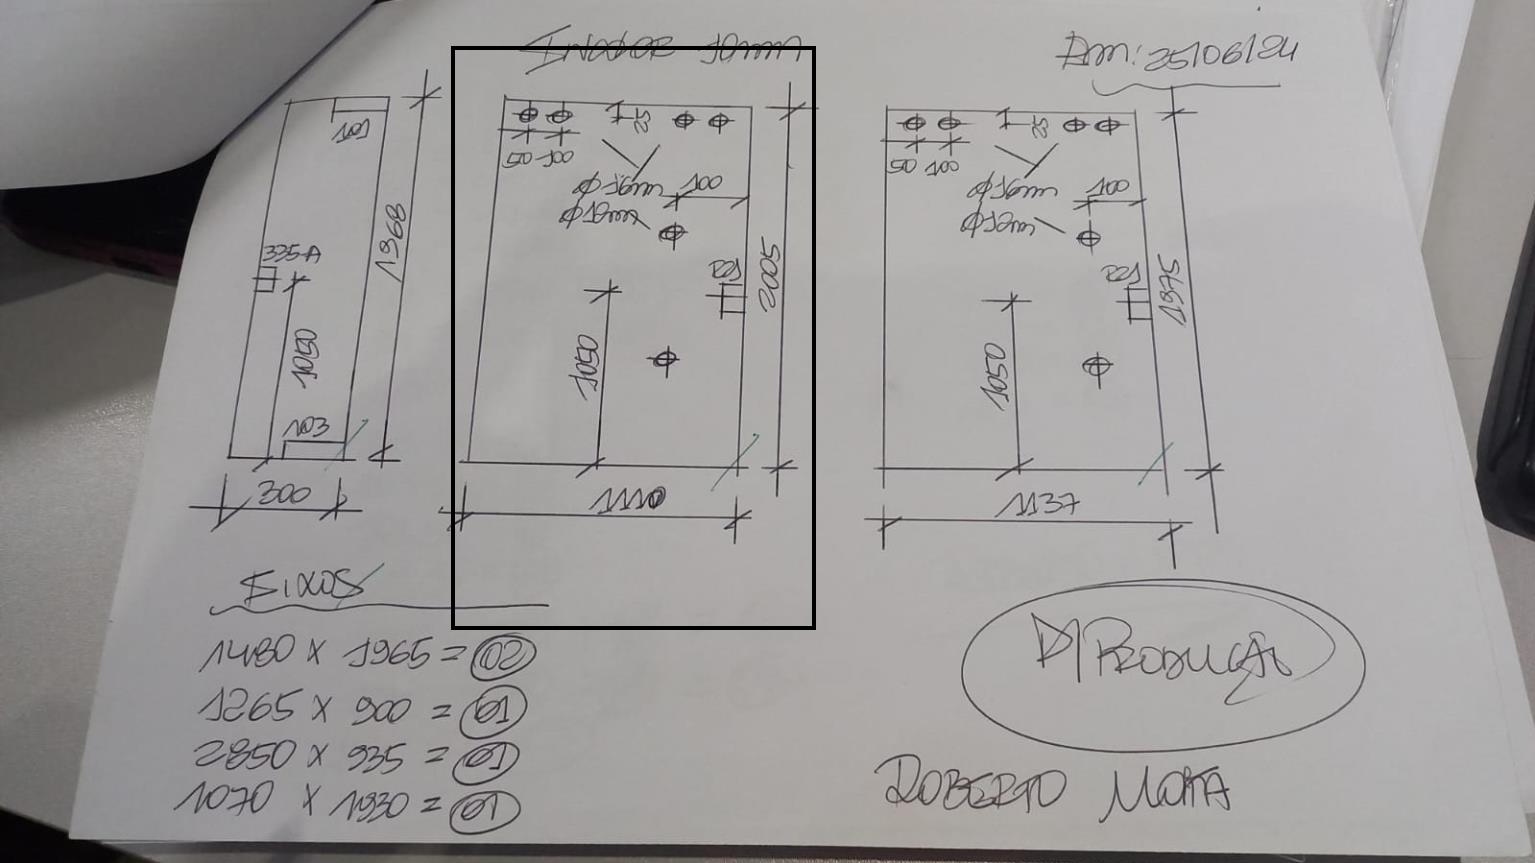 INCOLOR 10mm
Em: 25/06/24
101
1368
335A
1050
103
300
50 100
52
Φ16mm 100
Φ12mm
2005
1050
1110
50 100
52
Φ16mm 100
Φ12mm
1975
1050
1137
EIXOS
1480 X 1965 = 02
1265 X 900 = 01
2850 X 935 = 01
1070 X 1930 = 01
P/ PRODUÇÃO
ROBERTO MOTA